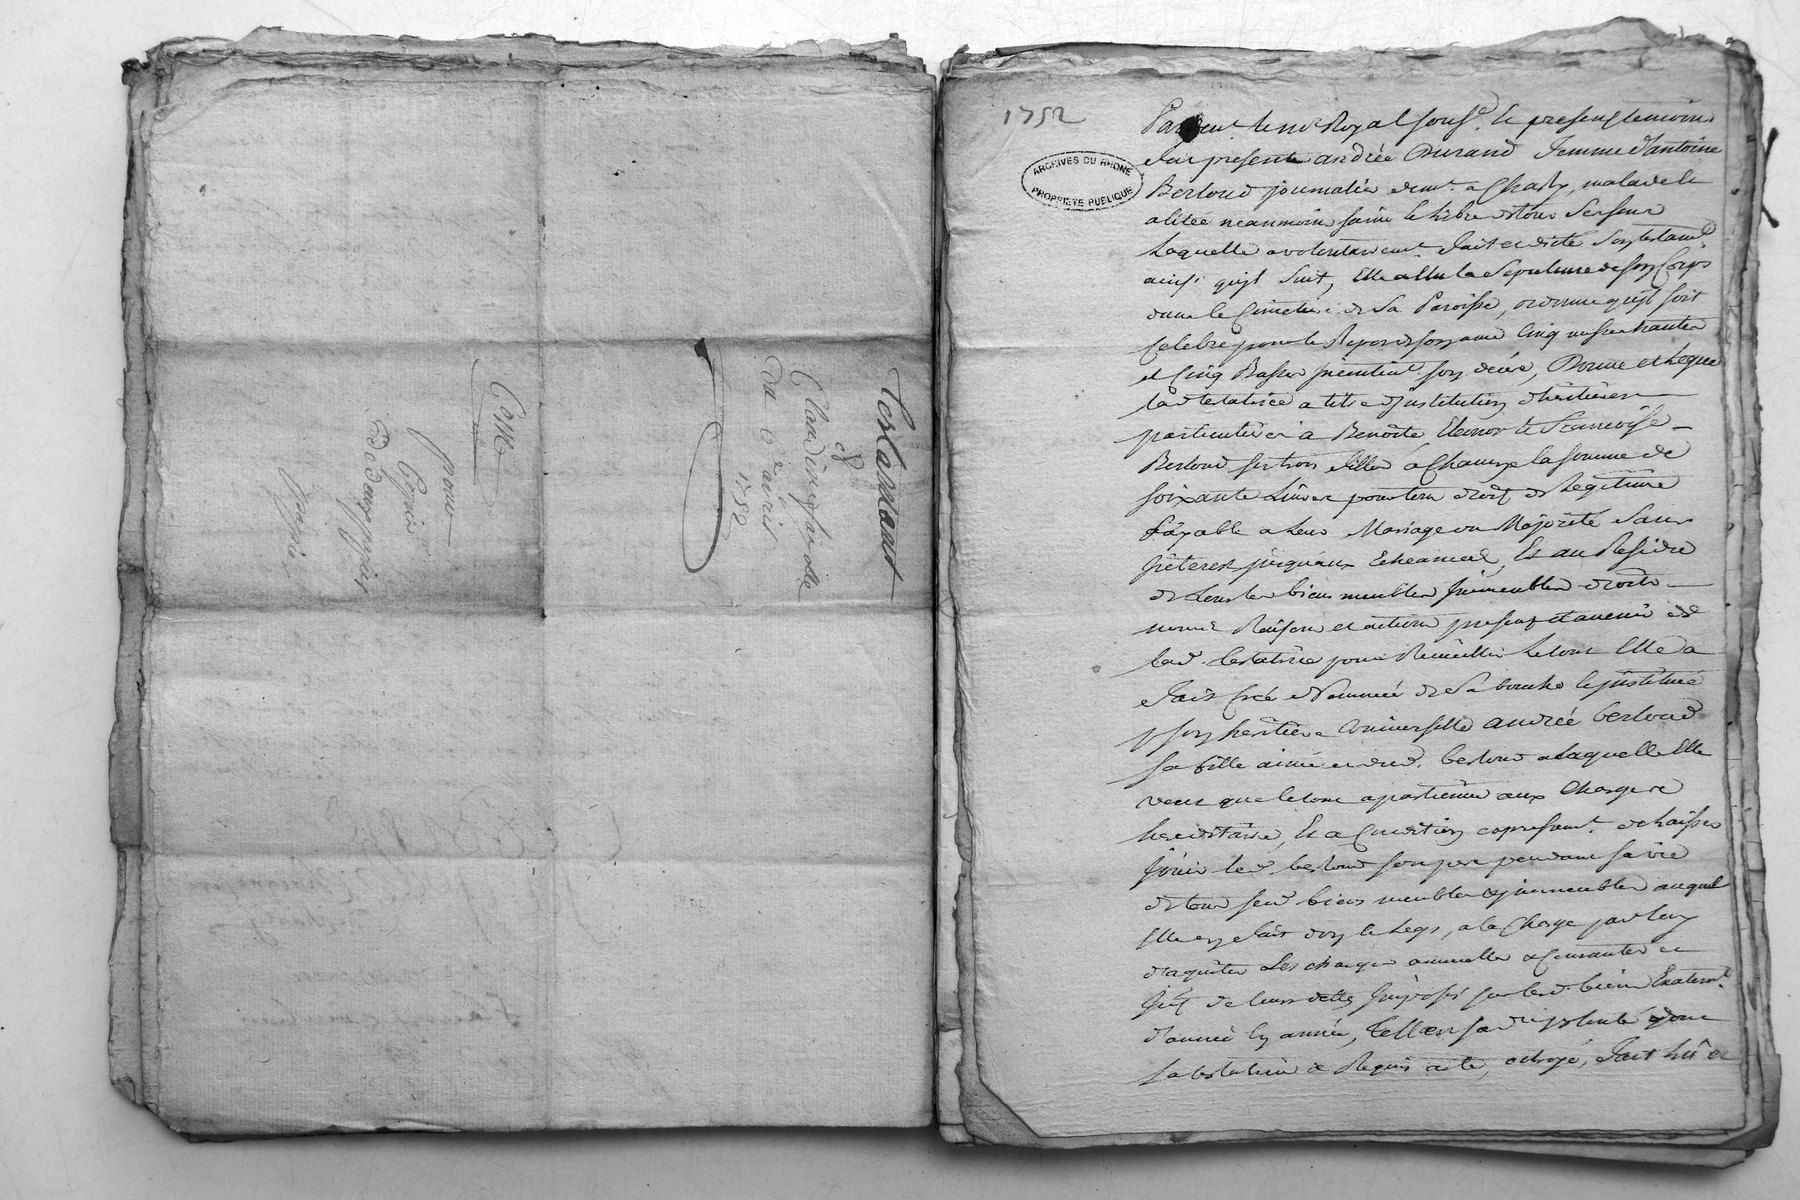 Testament
de
Claudine
du 6e avril
1752
Cy M
pour
Copie
de deux pages
papier
1752
ARCHIVES DU RHONE
PROPRIÉTÉ PUBLIQUE
Royal sousd. & presens temoins
fut presente andrée Durand femme d'antoine
Bertoud journalier demt. a Chasly, malade &
alitée neanmoins saine & libre de tous ses sens
Laquelle a volontairemt. fait et dicté son testamt.
ainsi qu'il suit, Elle a Elu la Sepulture de son Corps
dans le Cimetiere de Sa Paroisse, ordonne qu'il soit
Celebré pour le Repos de son ame Cinq messes hautes
et Cinq Basses son decés, Donne et Legue
lad. testatrice a titre d'institution d'heritieres
particulieres a Benoite, Eleonor & Francoise
Bertoud ses trois filles a Chacune la somme de
soixante Livres pour leur droit de Legitime
Payable a leur Mariage ou Majorité Sans
jnterest jusqu'aux Echeances, Et au Residu
de tous les biens meubles jmmeubles droits
noms Raisons et actions presens et avenir de
lad. testatrice pour Recueillir Le tout Elle a
fait Créé et Nommée de Sa bouche & jnstitué
p son heritiere Universelle andrée bertoud
sa fille ainée et dud. bertoud a Laquelle Elle
veut que le tout apartienne aux Charges
hereditaires, Et a Condition expressemt. de laisser
joüir led. bertoud son pere pendant sa vie
de tous sesd. biens meubles & jmmeubles auquel
Elle en fait don & Legs, a la Charge par luy
d'aquiter Les charges annuelles & Courantes
de leurs dettes jmposés sur lesd. biens
d'année En année, Telle est sad. volonté dont
la testatrice a Requis acte, octroyé, fait &